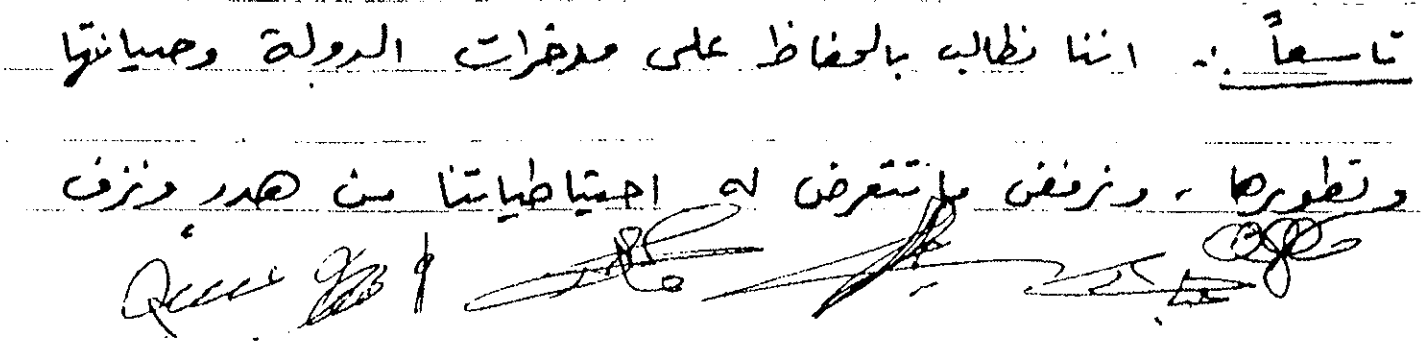 تاسعاً :- اننا نطالب بالحفاظ على مدخرات الدولة وصيانتها
وتطويرها ، ونرفض ما تتعرض له احتياطياتنا من هدر ونزف